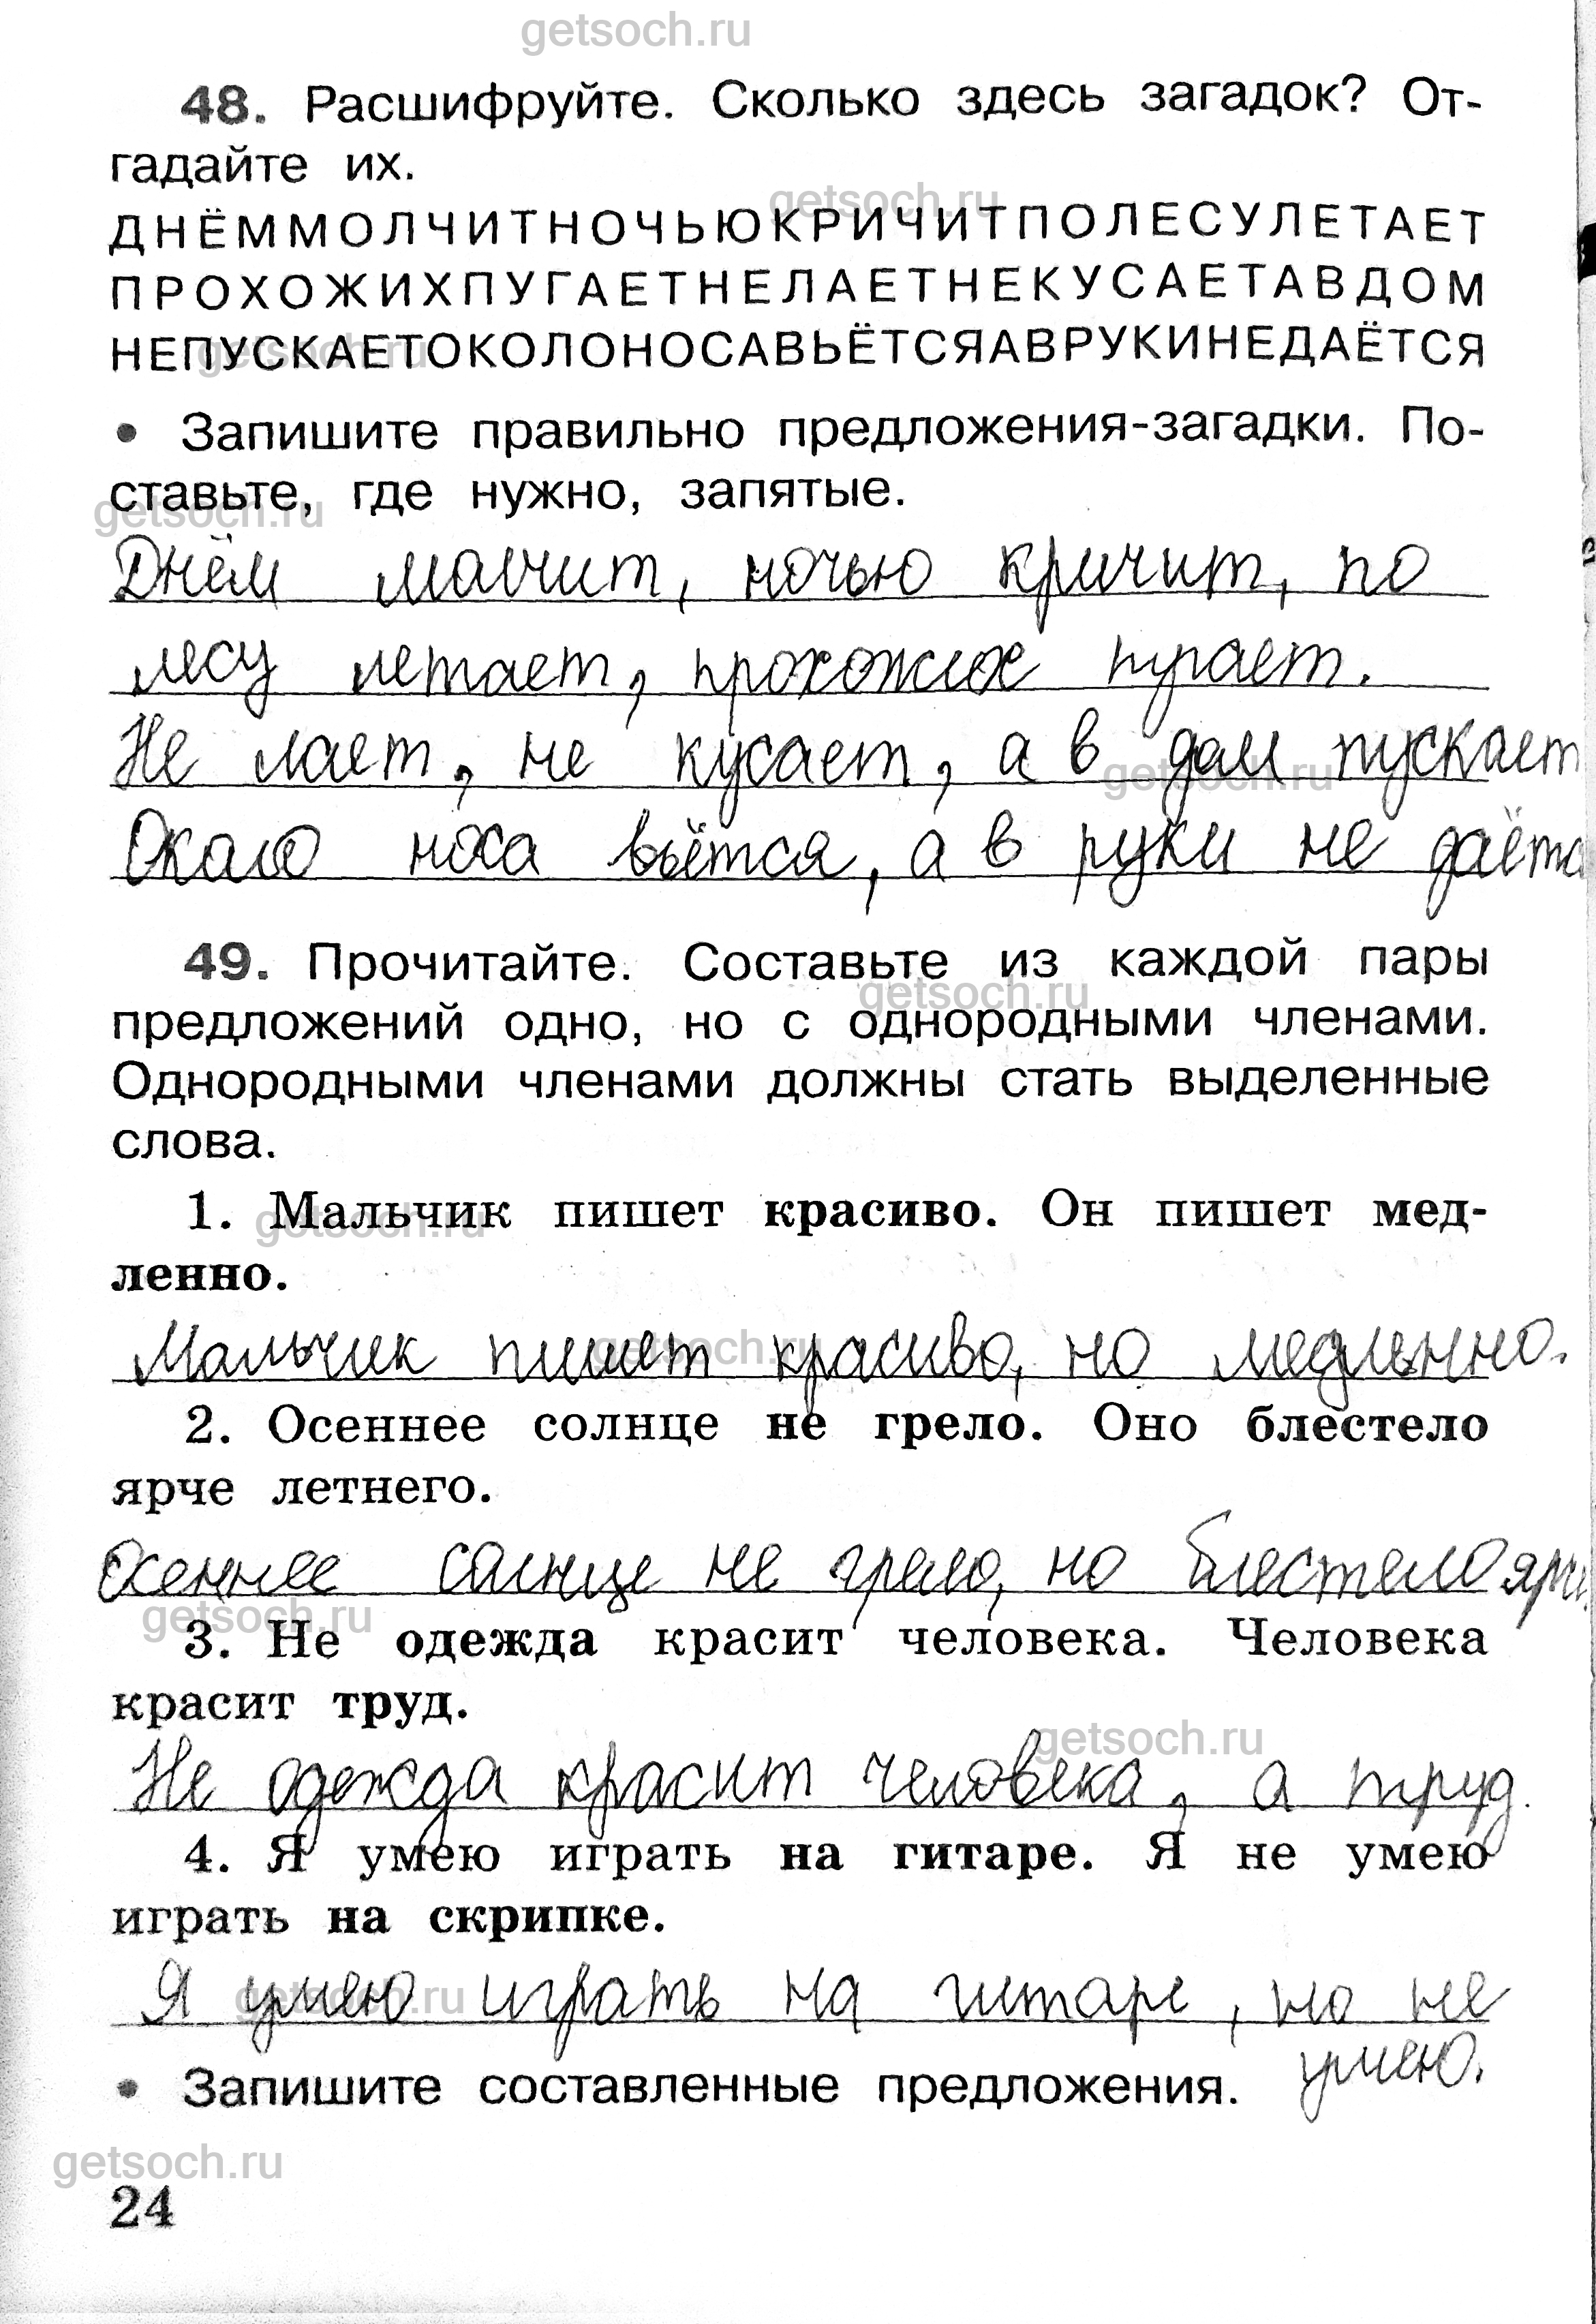 getsoch.ru
48. Расшифруйте. Сколько здесь загадок? От-
гадайте их.
getsoch.ru
ДНЁММОЛЧИТНОЧЬЮКРИЧИТПОЛЕСУЛЕТАЕТ
ПРОХОЖИХПУГАЕТНЕЛАЕТНЕКУСАЕТАВДОМ
НЕПУСКАЕТОКОЛОНОСАВЬЁТСЯАВРУКИНЕДАЁТСЯ
getsoch.ru
• Запишите правильно предложения-загадки. По-
ставьте, где нужно, запятые.
getsoch.ru
Днём молчит, ночью кричит, по
лесу летает, прохожих пугает.
Не лает, не кусает, а в дом пускает
getsoch.ru
Около носа вьётся, а в руки не даётс
49. Прочитайте. Составьте из каждой пары
getsoch.ru
предложений одно, но с однородными членами.
Однородными членами должны стать выделенные
слова.
1. Мальчик пишет красиво. Он пишет мед-
getsoch.ru
ленно.
Мальчик пишет красиво, но медленно.
getsoch.ru
2. Осеннее солнце не грело. Оно блестело
ярче летнего.
Осеннее солнце не грело, но блестело ярче
getsoch.ru
3. Не одежда красит человека. Человека
красит труд.
getsoch.ru
Не одежда красит человека, а труд.
4. Я умею играть на гитаре. Я не умею
играть на скрипке.
Я умею играть на гитаре, но не
getsoch.ru
умею.
• Запишите составленные предложения.
getsoch.ru
24